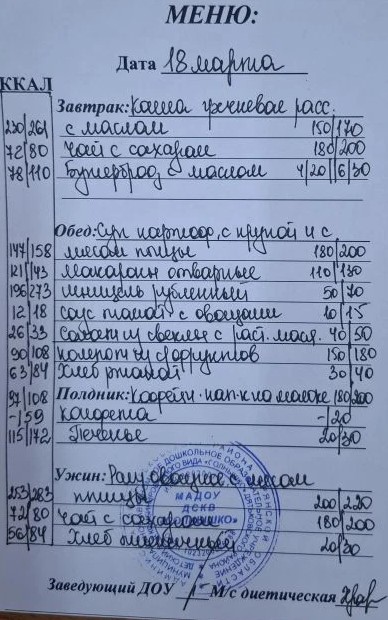 МЕНЮ:
Дата 18 марта
ККАЛ
Завтрак: Каша гречневая расс.
230/261 с маслом 150/170
72/80 Чай с сахаром 180/200
78/110 Бутерброд с маслом 4/20 || 6/30
Обед: Суп картоф. с крупой и с
147/158 мясом птицы 180/200
121/143 макароны отварные 110/130
196/273 шницель рубленный 50/70
12/18 соус томат. с овощами 10/15
26/33 Салат из свеклы с раст. масл. 40/50
90/108 компот из с/фруктов 150/180
63/84 Хлеб ржаной 30/40
Полдник: Кофейн. нап-к на молоке 180/200
97/108
-/59 конфета -/20
115/172 Печенье 20/30
Ужин: Рагу овощное с мясом
253/283 птицы 200/220
72/80 Чай с сахаром 180/200
56/84 Хлеб пшеничный 20/30
МАДОУ
ДСКВ
Заведующий ДОУ М/с диетическая